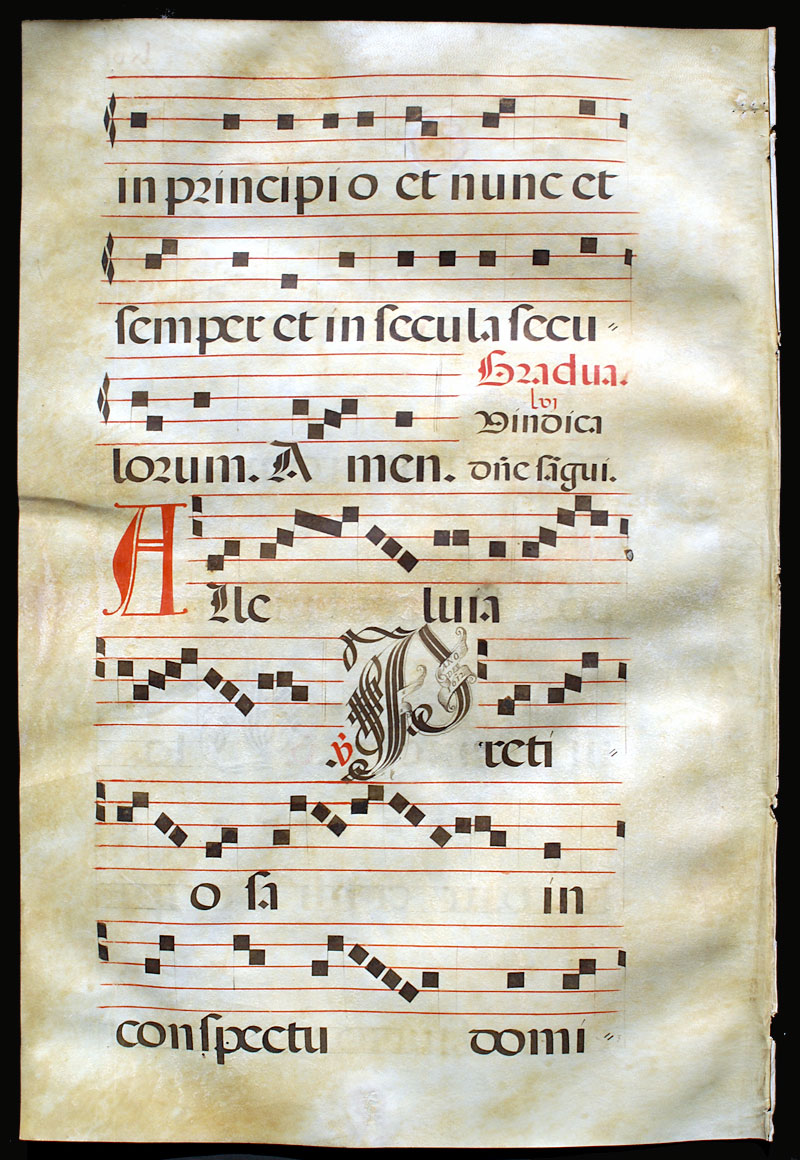 in principi o et nunc et
semper et in secula secu
Gradua.
lvi
Vindica
lorum. A men. dñe sãgui.
Alle luia
℣ Preti
o sa in
conspectu domi